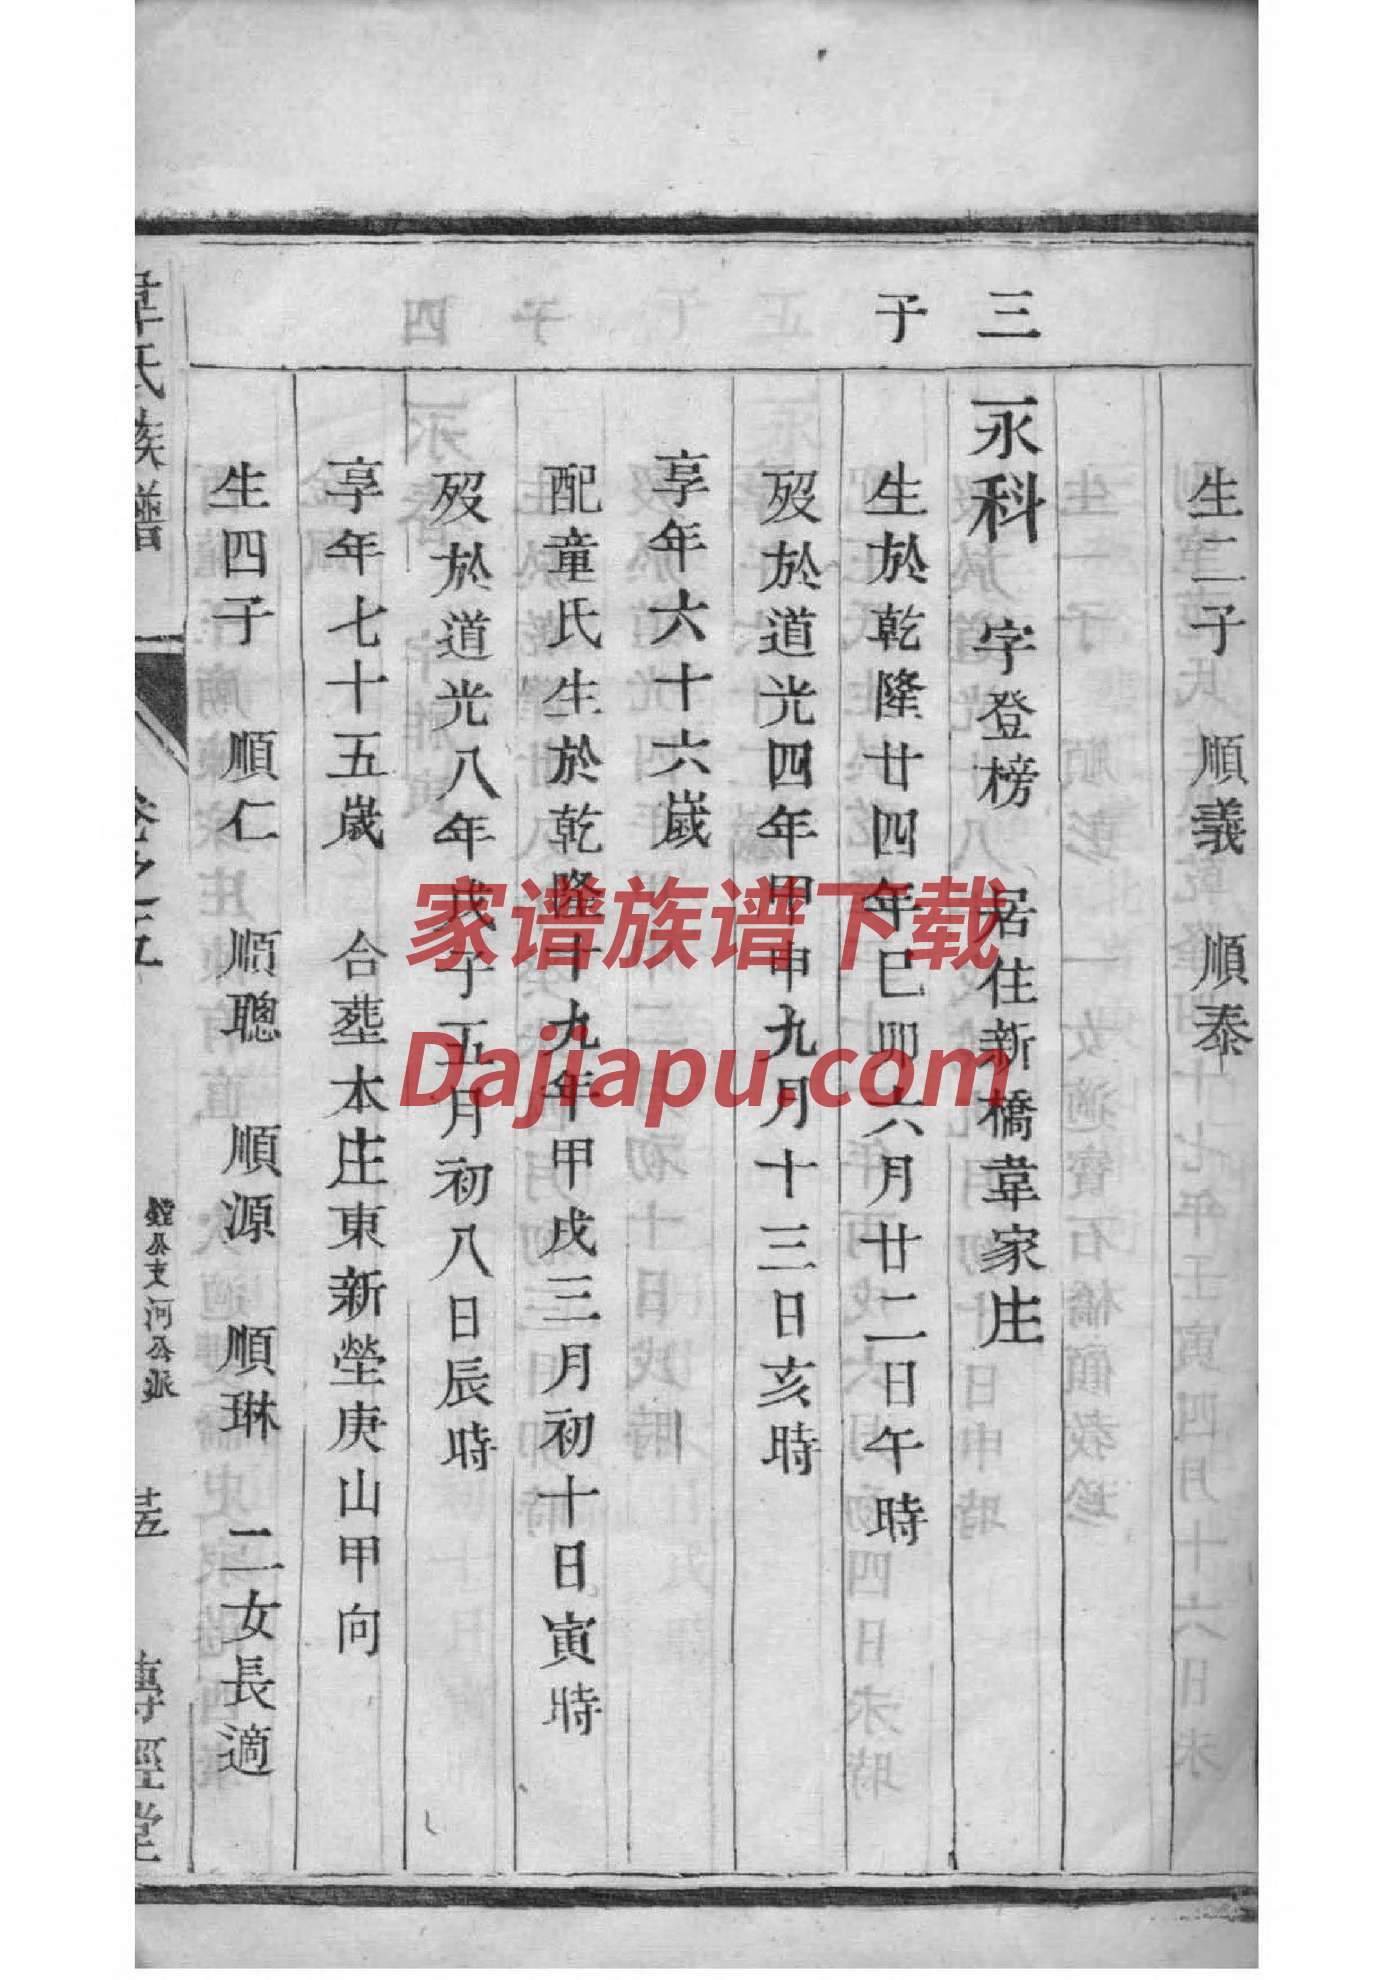 生二子　順義　順泰
三
永科　字登榜　居住新橋韋家庄
子
生於乾隆廿四年己卯六月廿二日午時
歿於道光四年甲申九月十三日亥時
享年六十六歲
配童氏生於乾隆十九年甲戌三月初十日寅時
歿於道光八年戊子五月初八日辰時
享年七十五歲　合葬本庄東新塋庚山甲向
生四子　順仁　順聰　順源　順琳　二女長適
韋氏族譜　卷之五　鏜公支河公派　傳經堂
家谱族谱下载
Dajiapu.com